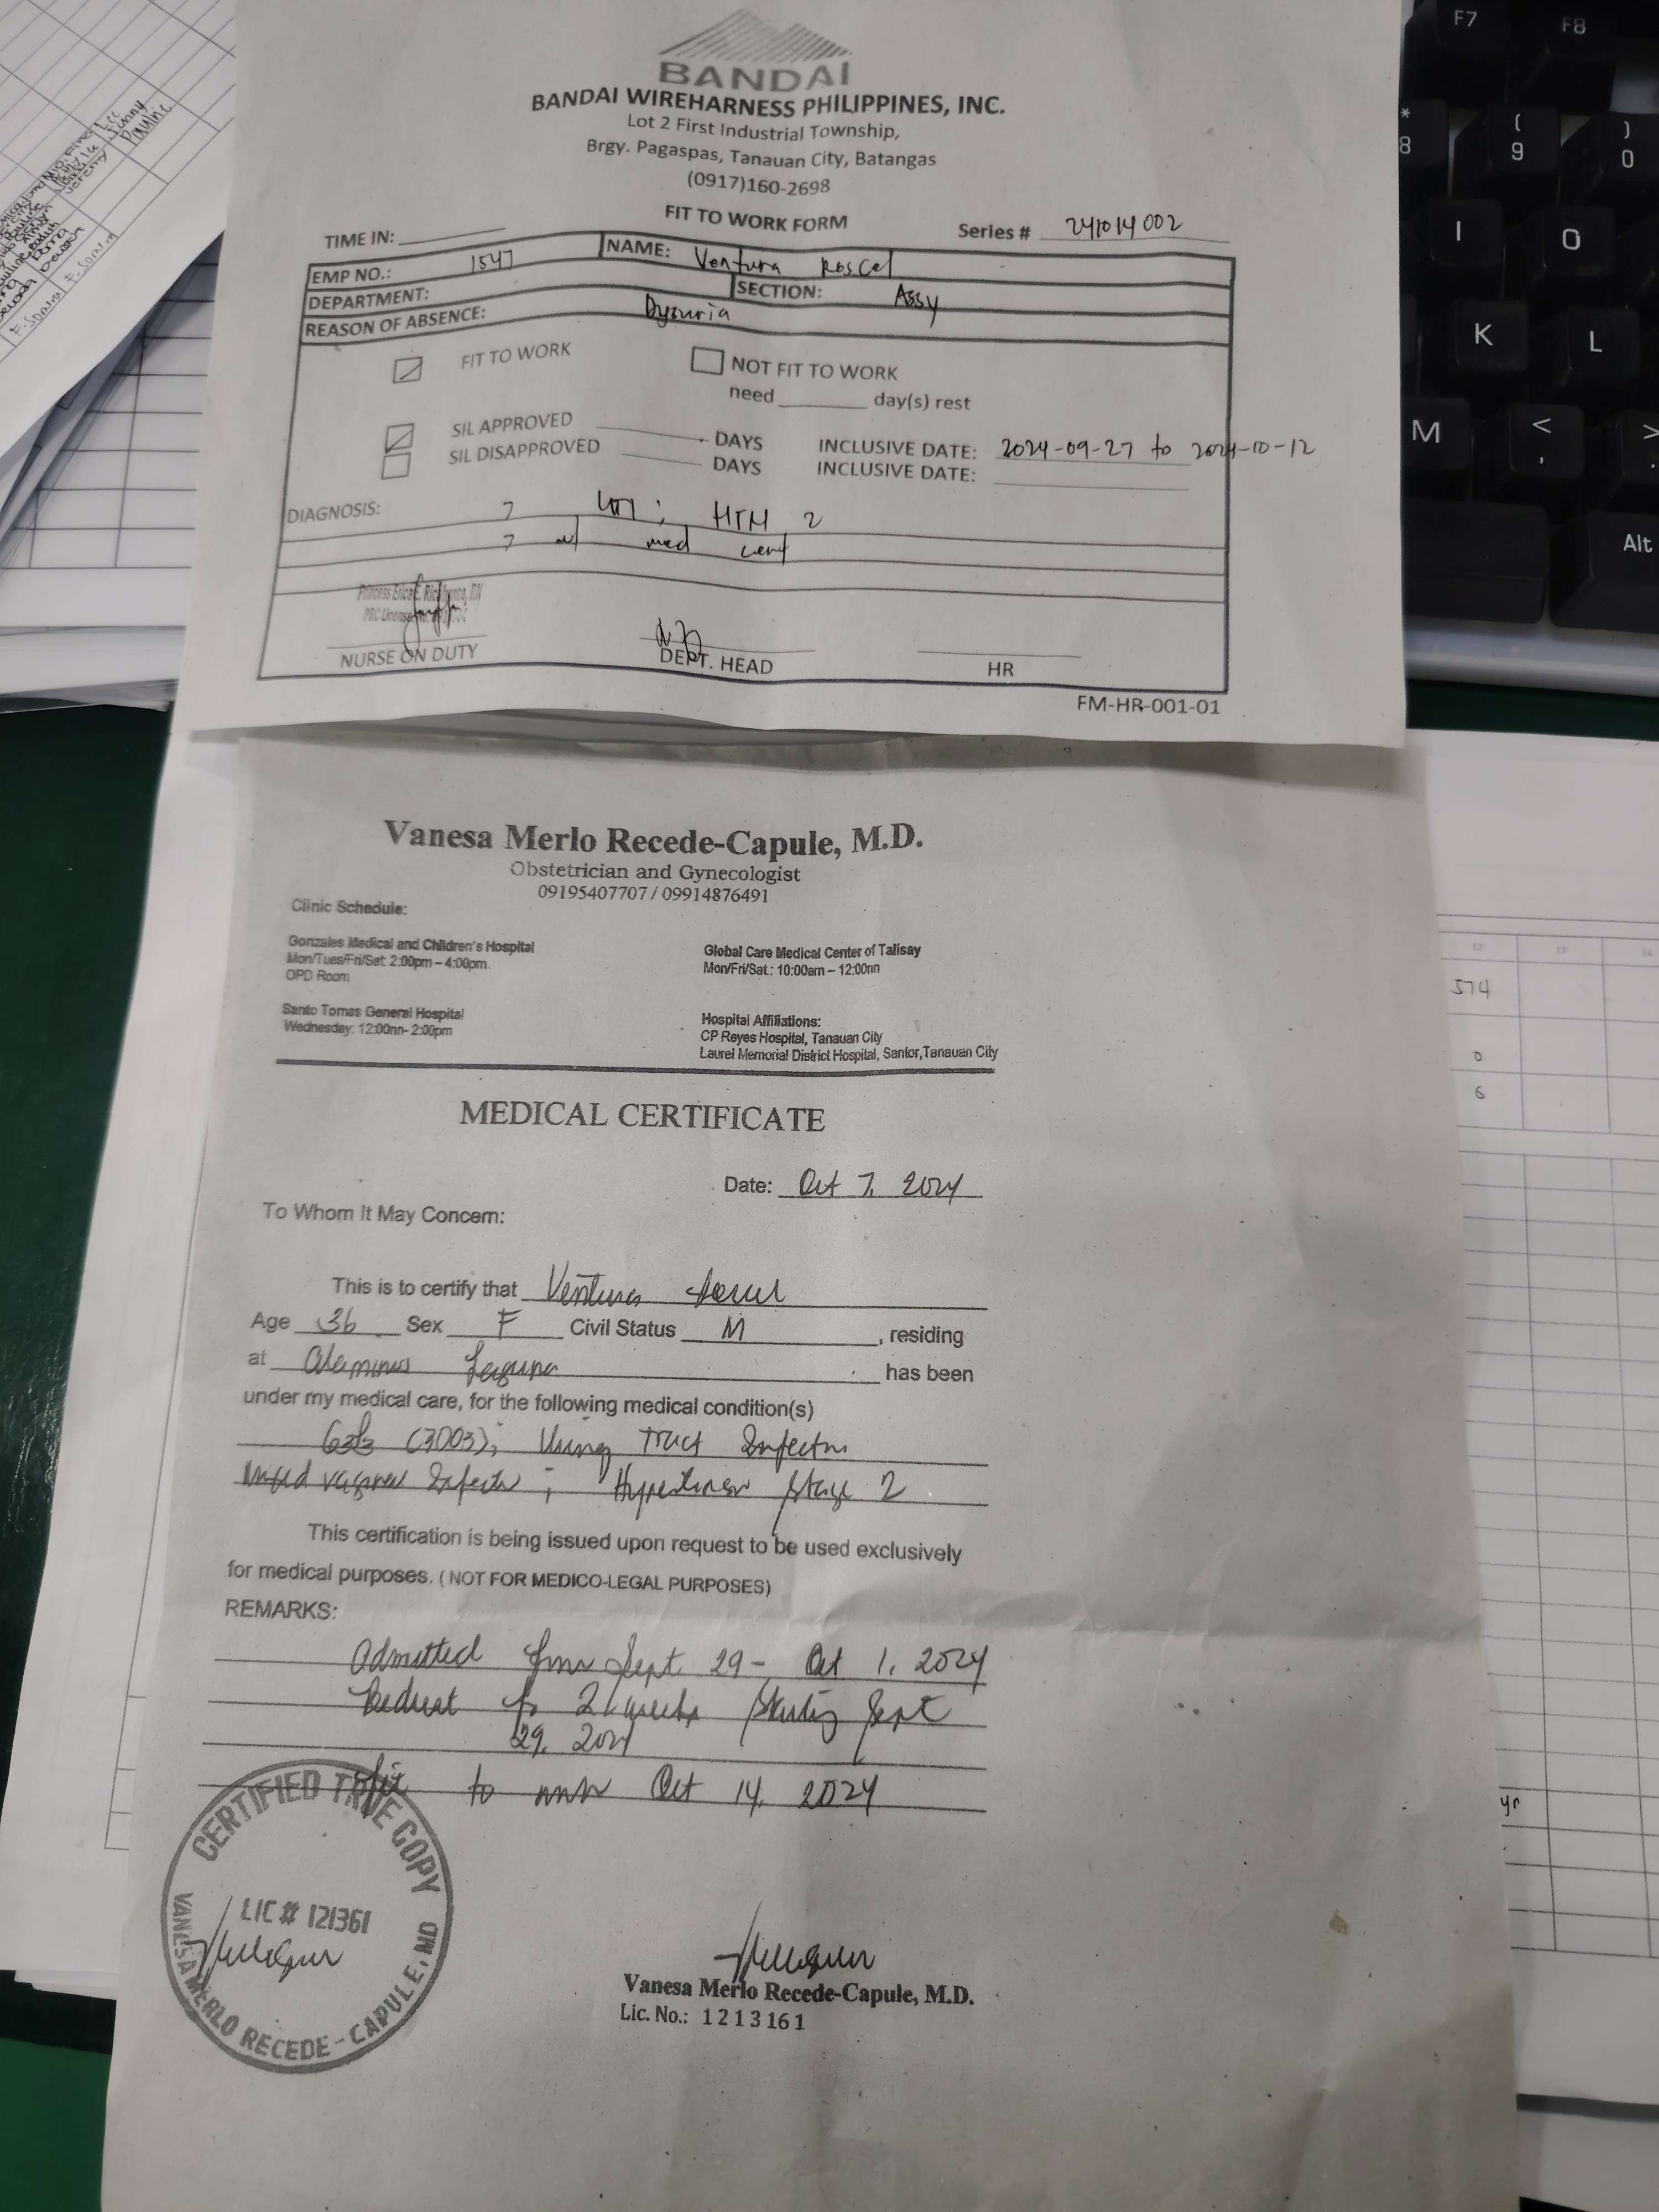 BANDAI
BANDAI WIREHARNESS PHILIPPINES, INC.
Lot 2 First Industrial Township,
Brgy. Pagaspas, Tanauan City, Batangas
(0917)160-2698
FIT TO WORK FORM
TIME IN: Series # 241014002
EMP NO.: 1547 NAME: Ventura Roscel
DEPARTMENT: SECTION: Assy
REASON OF ABSENCE: Dysuria
FIT TO WORK NOT FIT TO WORK
need day(s) rest
SIL APPROVED DAYS INCLUSIVE DATE: 2024-09-27 to 2024-10-12
SIL DISAPPROVED DAYS INCLUSIVE DATE:
DIAGNOSIS: UTI ; HTN 2
w/ med cert
NURSE ON DUTY DEPT. HEAD HR
FM-HR-001-01
Vanesa Merlo Recede-Capule, M.D.
Obstetrician and Gynecologist
09195407707 / 09914876491
Clinic Schedule:
Gonzales Medical and Children's Hospital
Mon/Tues/Fri/Sat: 2:00pm – 4:00pm.
OPD Room
Global Care Medical Center of Talisay
Mon/Fri/Sat.: 10:00am – 12:00nn
Santo Tomas General Hospital
Wednesday: 12:00nn- 2:00pm
Hospital Affiliations:
CP Reyes Hospital, Tanauan City
Laurel Memorial District Hospital, Santor,Tanauan City
MEDICAL CERTIFICATE
Date: Oct 7, 2024
To Whom It May Concern:
This is to certify that Ventura Roscel
Age 36 Sex F Civil Status M , residing
at Alaminos Laguna has been
under my medical care, for the following medical condition(s)
(3003); Urinary Tract Infection
Mixed vaginal Infection ; Hypertension Stage 2
This certification is being issued upon request to be used exclusively
for medical purposes. ( NOT FOR MEDICO-LEGAL PURPOSES)
REMARKS:
Admitted from Sept 29 - Oct 1, 2024
Bedrest for 2 weeks starting Sept
29, 2024
fit to work Oct 14, 2024
CERTIFIED TRUE COPY
LIC # 121361
VANESA MERLO RECEDE - CAPULE, MD
Vanesa Merlo Recede-Capule, M.D.
Lic. No.: 1213161
F7
F8
*
8
(
9
)
0
I
O
K
L
M
<
,
>
.
Alt
12
13
14
574
0
6
yr